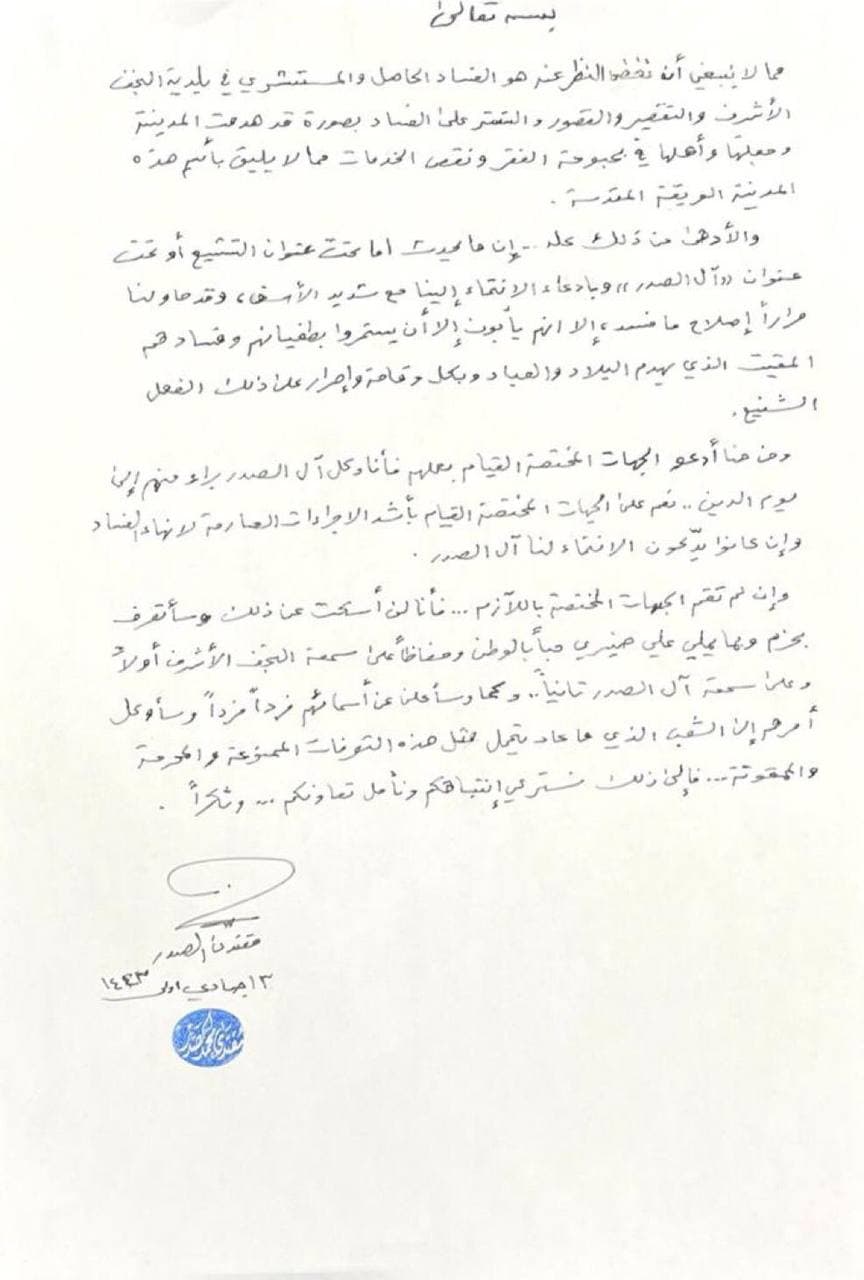 بسمه تعالى
مما لا ينبغي أن نغض النظر عنه هو الفساد الحاصل والمستشري في بلدية النجف
الأشرف والتقصير والقصور والتستر على الفساد بصورة قد هدمت المدينة
وجعلتها وأهلها في بحبوحة الفقر ونقص الخدمات مما لا يليق بأسم هذه
المدينة العريقة المقدسة .
والأدهى من ذلك كله .. إن ما يحدث اما تحت عنوان التشيع أو تحت
عنوان ((آل الصدر)) وبادعاء الانتماء إلينا مع شديد الأسف، وقد حاولنا
مراراً إصلاح ما فسد، إلا انهم يأبون إلا أن يستمروا بطغيانهم وفسادهم
المقيت الذي يهدم البلاد والعباد وبكل وقاحة وإصرار على ذلك الفعل
الشنيع.
ومن هنا أدعو الجهات المختصة القيام بعملهم فأنا وكل آل الصدر براء منهم إلى
يوم الدين .. نعم على الجهات المختصة القيام بأشد الاجراءات الصارمة لانهاء الفساد
وإن كانوا يدّعون الانتماء لنا آل الصدر .
وإن لم تقم الجهات المختصة باللآزم ... فأنا لن أسكت عن ذلك وسأتصرف
بحزم وبما يملي علي ضميري حباً بالوطن وحفاظاً على سمعة النجف الأشرف أولاً
وعلى سمعة آل الصدر ثانياً .. وكما وسأعلن عن أسمائهم فرداً فرداً وسأوكل
أمرهم إلى الشعب الذي ما عاد يتحمل مثل هذه التصرفات الممنوعة والمحرمة
والممقوتة ... فإلى ذلك نسترعي إنتباهكم ونأمل تعاونكم ... وشكراً .
مقتدى الصدر
١٣ جمادي اولى ١٤٤٣
مقتدى محمد الصدر